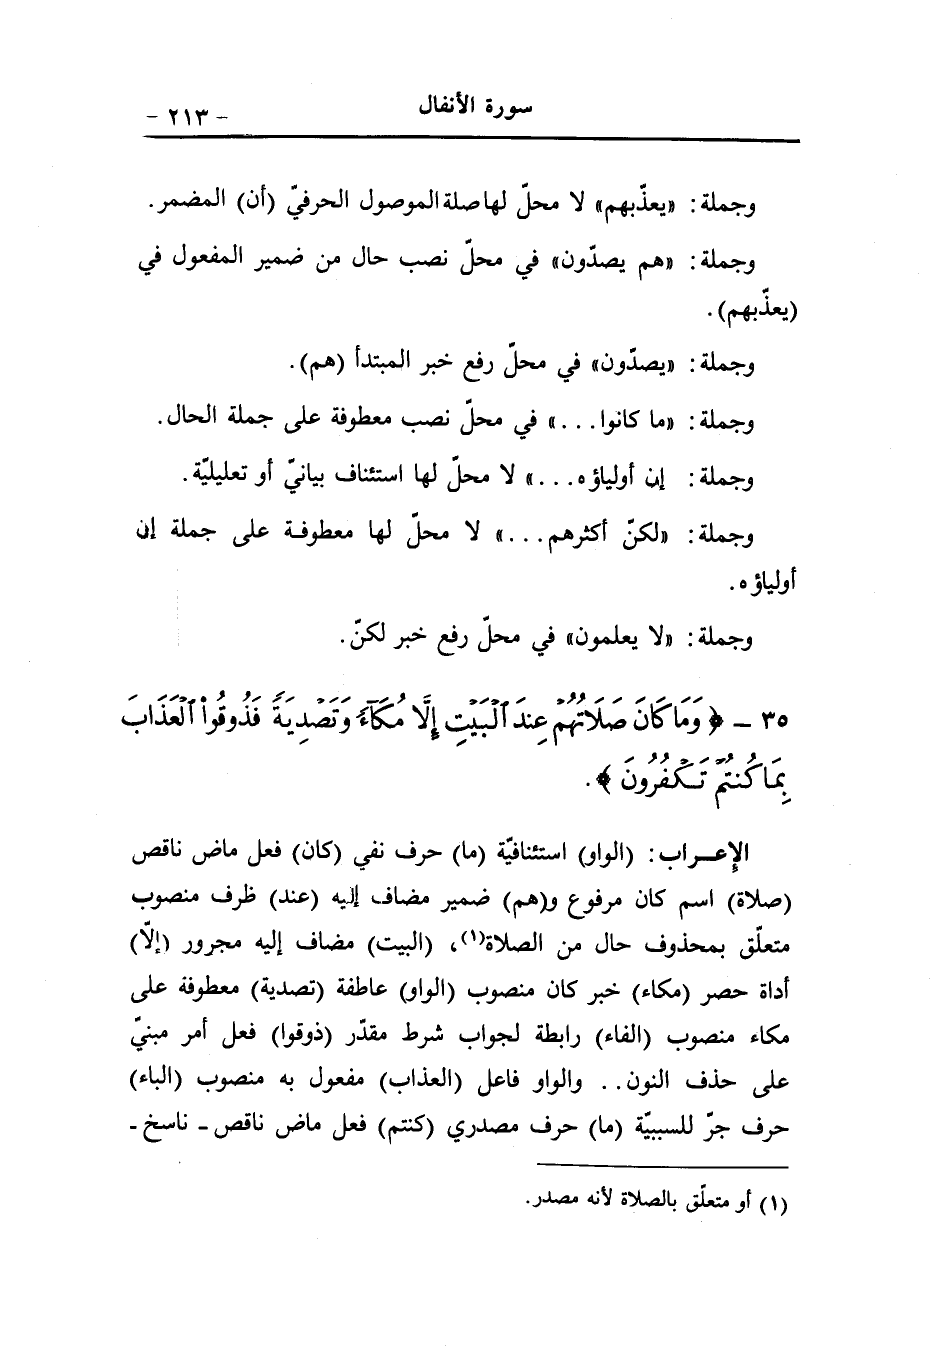 سورة الأنفال
- ٢١٣ -
وجملة: «يعذّبهم» لا محلّ لها صلة الموصول الحرفيّ (أن) المضمر.
وجملة: «هم يصدّون» في محلّ نصب حال من ضمير المفعول في
(يعذّبهم).
وجملة: «يصدّون» في محلّ رفع خبر المبتدأ (هم).
وجملة: «ما كانوا...» في محلّ نصب معطوفة على جملة الحال.
وجملة: إن أولياؤه...» لا محلّ لها استئناف بيانيّ أو تعليليّة.
وجملة: «لكنّ أكثرهم...» لا محلّ لها معطوفة على جملة إن
أولياؤه.
وجملة: «لا يعلمون» في محلّ رفع خبر لكنّ.
٣٥ - ﴿ وَمَا كَانَ صَلَاتُهُمْ عِندَ ٱلْبَيْتِ إِلَّا مُكَآءً وَتَصْدِيَةً فَذُوقُوا۟ ٱلْعَذَابَ
بِمَا كُنتُمْ تَكْفُرُونَ ﴾.
الإعراب: (الواو) استئنافيّة (ما) حرف نفي (كان) فعل ماض ناقص
(صلاة) اسم كان مرفوع و(هم) ضمير مضاف إليه (عند) ظرف منصوب
متعلّق بمحذوف حال من الصلاة(١)، (البيت) مضاف إليه مجرور (إلّا)
أداة حصر (مكاء) خبر كان منصوب (الواو) عاطفة (تصدية) معطوفة على
مكاء منصوب (الفاء) رابطة لجواب شرط مقدّر (ذوقوا) فعل أمر مبنيّ
على حذف النون.. والواو فاعل (العذاب) مفعول به منصوب (الباء)
حرف جرّ للسببيّة (ما) حرف مصدري (كنتم) فعل ماض ناقص - ناسخ -
(١) أو متعلّق بالصلاة لأنه مصدر.